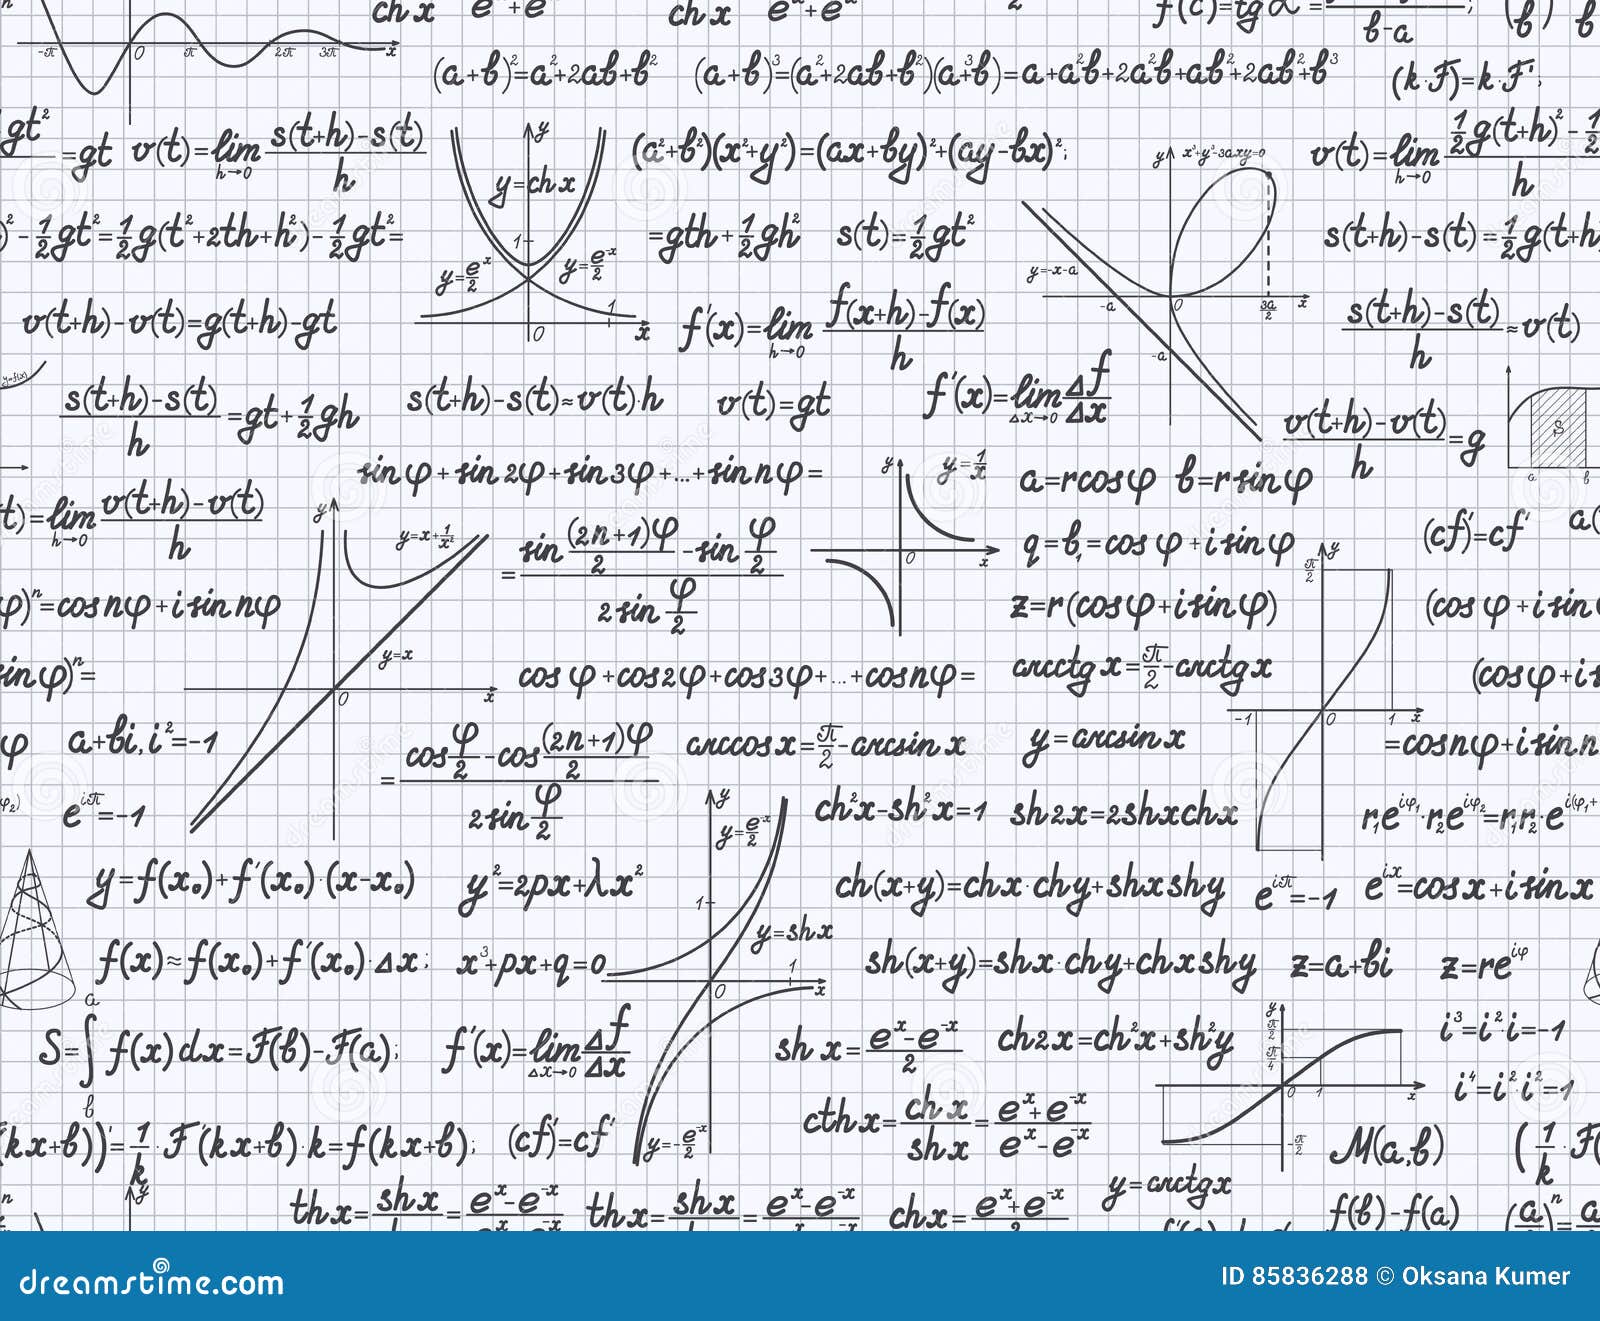 ch x e^x+e^-x ch x e^x+e^-x 2 f(c)=tg α= b-a ;
-π 0 π 2π 3π x
(a+b)^2=a^2+2ab+b^2 (a+b)^3=(a^2+2ab+b^2)(a^3+b)=a+a^2b+2a^2b+ab^2+2ab^2+b^3 (k·F)=k·F';
gt^2 =gt v(t)=lim h→0 s(t+h)-s(t) / h
y y=ch x 1 y=e^x/2 y=e^-x/2 0 1 x
(a^2+b^2)(x^2+y^2)=(ax+by)^2+(ay-bx)^2;
y x^3+y^3-3axy=0 y=-x-a -a 0 3a/2 x -a
v(t)=lim h→0 1/2g(t+h)^2-1/2 / h
)^2-1/2gt^2=1/2g(t^2+2th+h^2)-1/2gt^2= =gth+1/2gh^2 s(t)=1/2gt^2 s(t+h)-s(t)=1/2g(t+h)
v(t+h)-v(t)=g(t+h)-gt f'(x)=lim h→0 f(x+h)-f(x) / h s(t+h)-s(t) / h ≈v(t)
y=f(x)
s(t+h)-s(t) / h =gt+1/2gh s(t+h)-s(t)≈v(t)·h v(t)=gt f'(x)=lim Δx→0 Δf/Δx v(t+h)-v(t) / h =g S a b
sinφ+sin2φ+sin3φ+...+sin nφ= y y=1/x 0 x a=rcosφ b=rsinφ
t)=lim h→0 v(t+h)-v(t) / h y y=x+1/x^2 y=x 0 x
= sin (2n+1)φ/2 -sin φ/2 / 2sin φ/2 q=b_1=cosφ+isinφ (cf)'=cf' a(
φ)^n=cos nφ+isin nφ z=r(cosφ+isinφ) π/2 y -1 0 1 x (cosφ+isin
inφ)^n= cosφ+cos2φ+cos3φ+...+cosnφ= arcctg x=π/2-arctg x (cosφ+is
φ a+bi, i^2=-1 = cos φ/2 -cos (2n+1)φ/2 / 2sin φ/2 arccos x=π/2-arcsin x y=arcsin x =cosnφ+isin n
φ_2) e^iπ=-1 y y=e^-x/2 1 y=sh x 0 1 x y=-e^-x/2 ch^2x-sh^2x=1 sh2x=2shxchx r_1e^iφ_1·r_2e^iφ_2=r_1r_2·e^i(φ_1+
y=f(x_0)+f'(x_0)·(x-x_0) y^2=2px+λx^2 ch(x+y)=chx·chy+shxshy e^iπ=-1 e^ix=cosx+isinx
f(x)≈f(x_0)+f'(x_0)·Δx; x^3+px+q=0 sh(x+y)=shx·chy+chxshy z=a+bi z=re^iφ
S=∫ a b f(x)dx=F(b)-F(a); f'(x)=lim Δx→0 Δf/Δx sh x=e^x-e^-x / 2 ch2x=ch^2x+sh^2y y π/2 π/4 0 1 x -π/2 i^3=i^2·i=-1
i^4=i^2·i^2=1
(kx+b))'=1/k·F'(kx+b)·k=f(kx+b); (cf)'=cf' cthx=ch x/sh x=e^x+e^-x / e^x-e^-x M(a,b) (1/k·F(
y=arctgx
y thx=shx = e^x-e^-x thx=shx = e^x-e^-x chx=e^x+e^-x f(b)-f(a) (a)^n=a
dreamstime.com ID 85836288 © Oksana Kumer